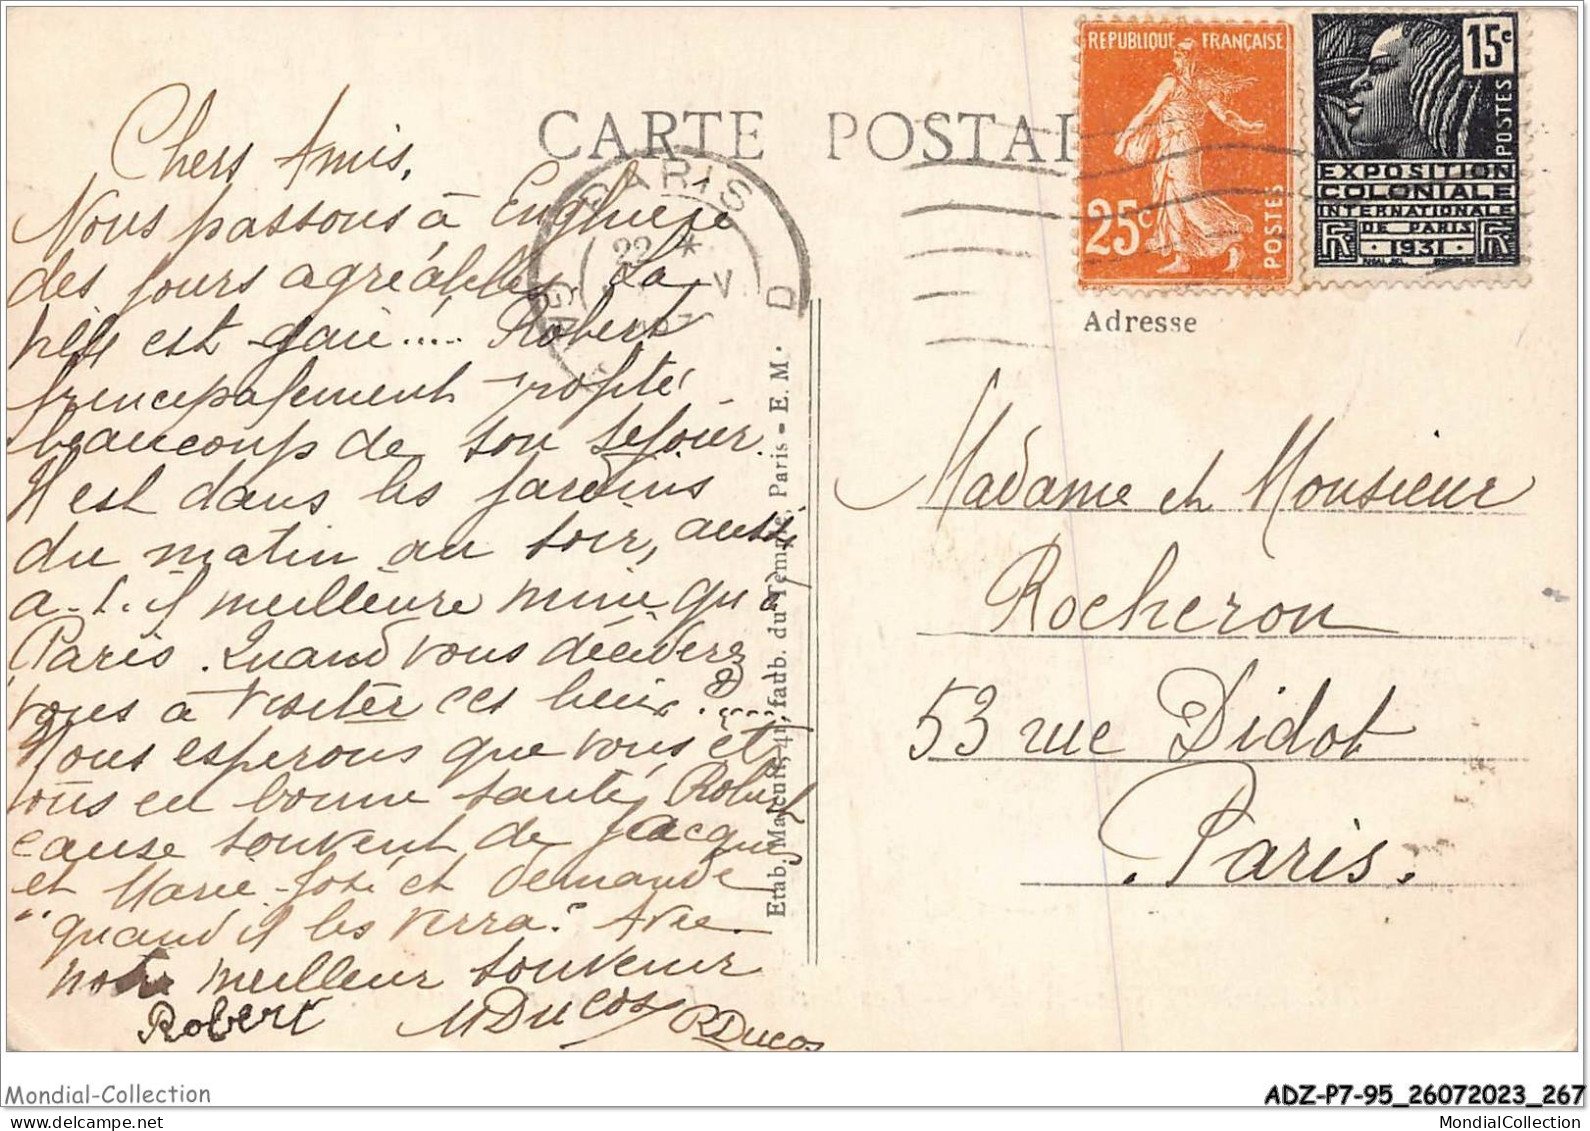 CARTE POSTAL
REPUBLIQUE FRANÇAISE
25c
POSTES
15c
POSTES
EXPOSITION
COLONIALE
INTERNATIONALE
DE PARIS
1931
PARIS
22 * V
D
Adresse
Chers Amis,
Nous passons à Enghiere
des jours agréables. La
est gaie..... Robert
principalement profite
beaucoup de son sejour.
Il est dans les jardins
du matin au soir, aussi
a-t-il meilleure mine qu'à
Paris. Quand vous déciderez
vous à visiter ces lieux?.....
Nous esperons que vous êtes
tous en bonne santé, Robert
cause souvent de Jacques
et Marie-José et demande
"quand il les verra? Avec
notre meilleur souvenir
Robert MDucos RDucos
Etab. Malcuit, 41, faub. du Temple, Paris - E. M.
Madame et Monsieur
Rocheron
53 rue Didot
Paris.
Mondial-Collection
ADZ-P7-95_26072023_267
MondialCollection